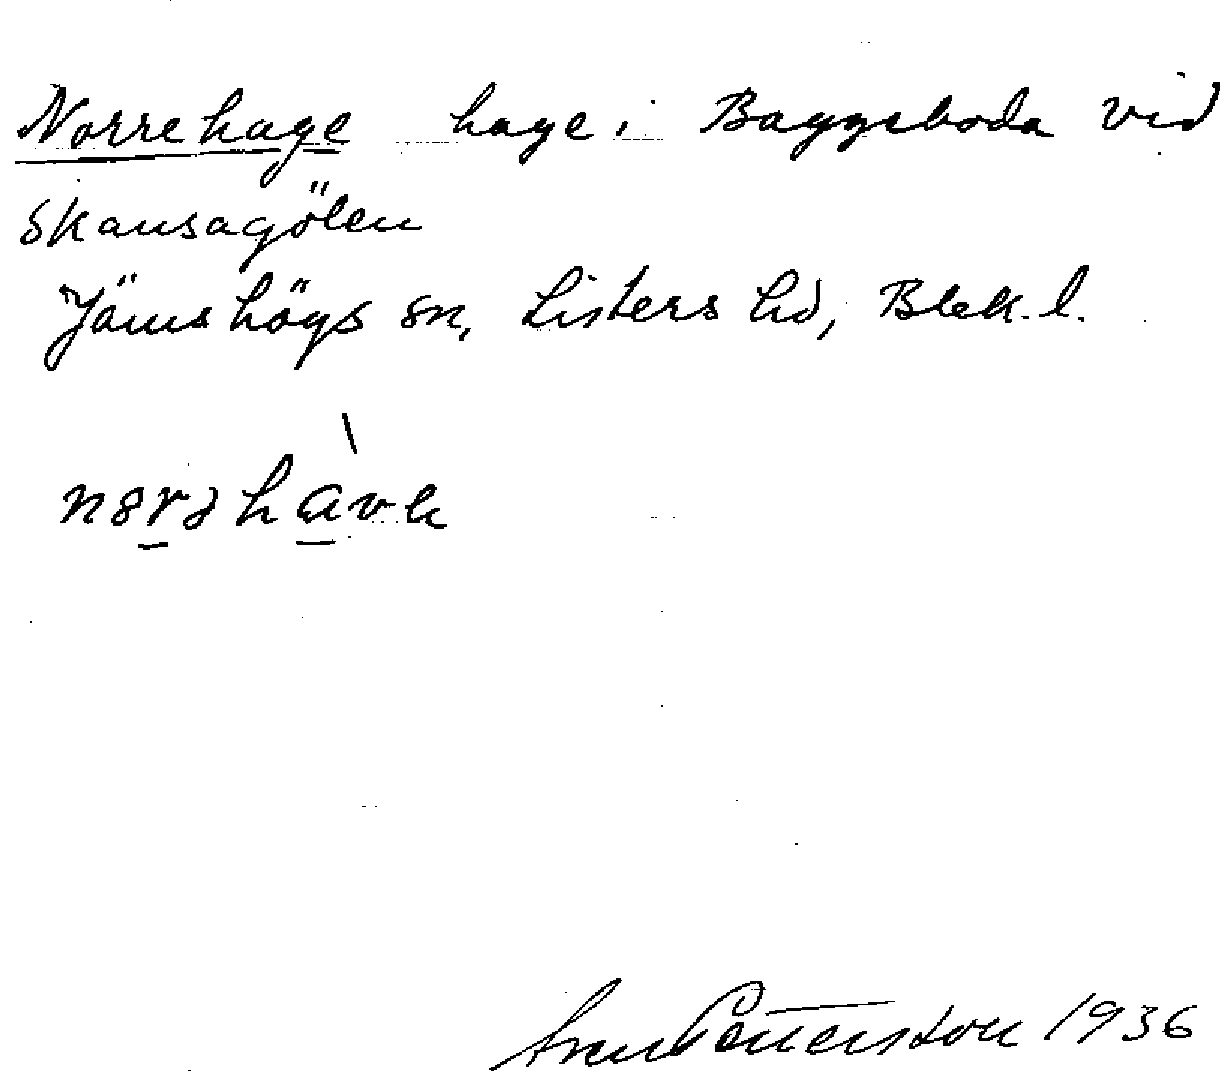 Norrehage hage i Baggeboda vid
Skansagölen
Jämshögs sn, Listers hd, Blek. l.
Sven Pettersson 1936